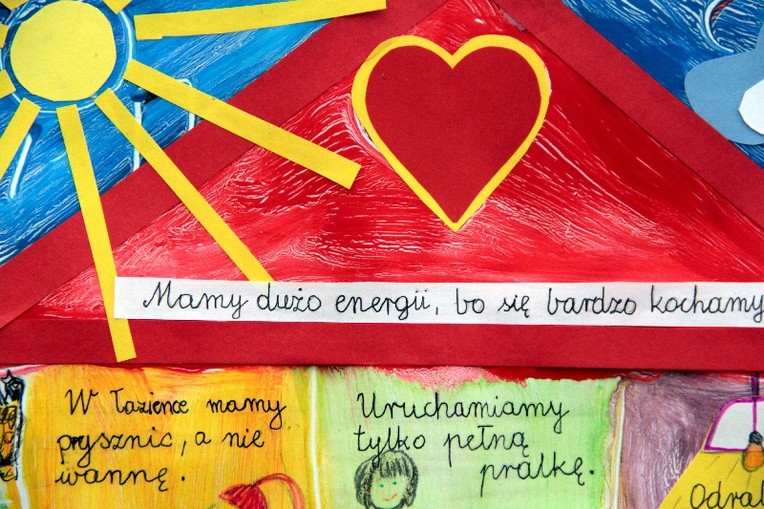 Mamy dużo energii, bo się bardzo kochamy
W łazience mamy
prysznic, a nie
wannę.
Uruchamiamy
tylko pełną
pralkę.